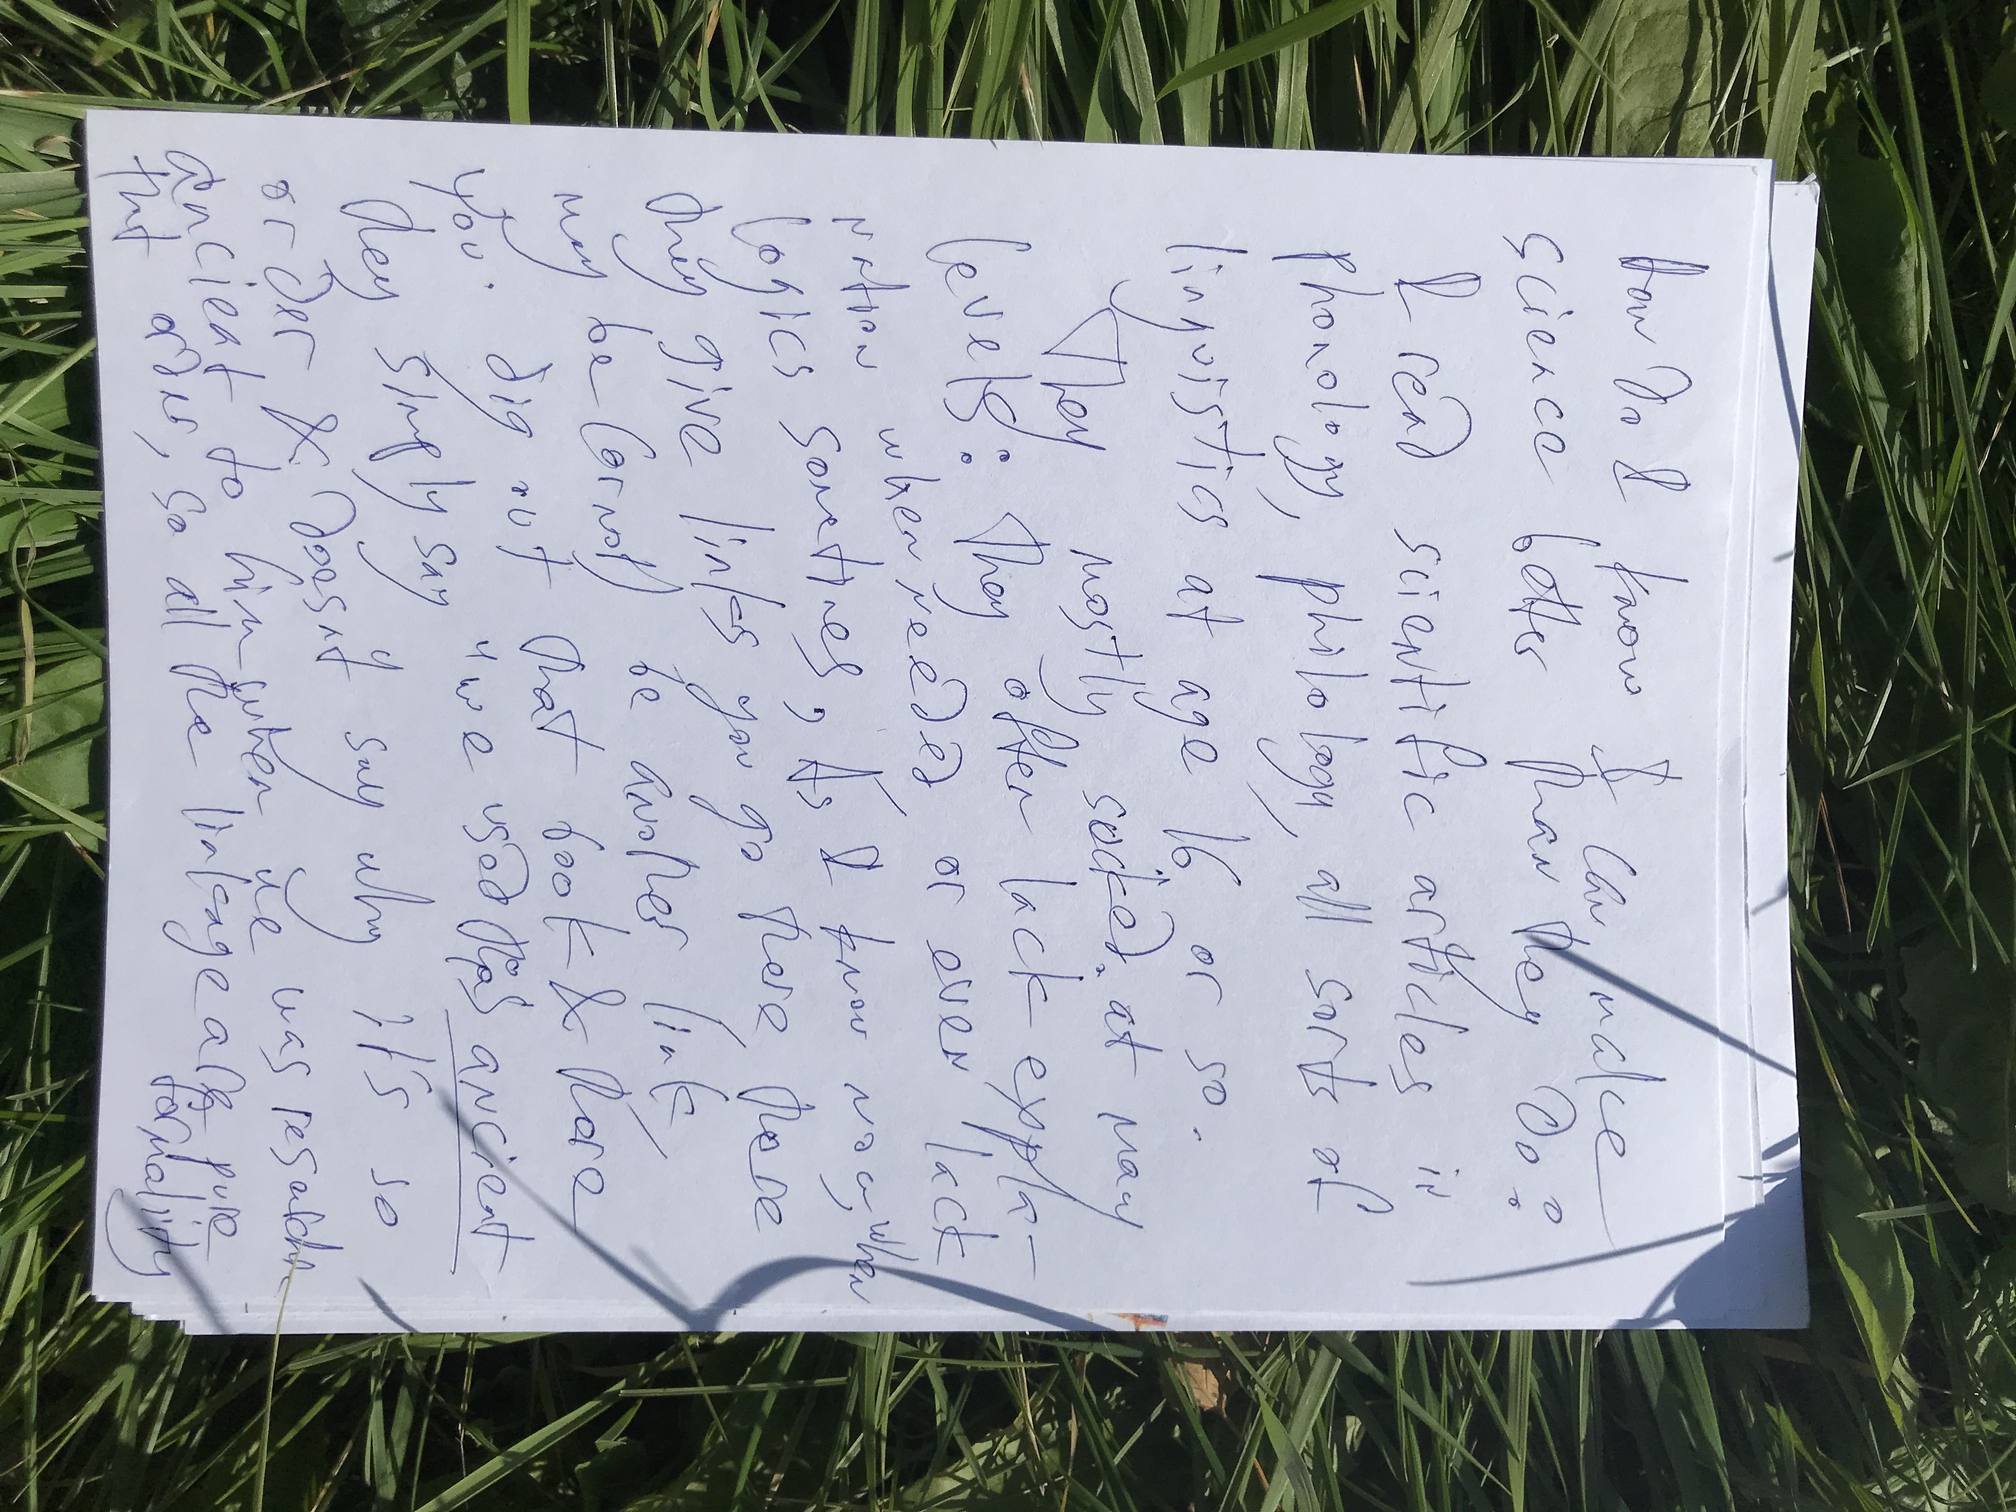 How do I know I can make
science better than they do?
I read scientific articles in
phonology, philology, all sorts of
linguistics at age 16 or so.
They mostly sucked at many
levels: They often lack expla-
nation when needed or even lack
logics sometimes, As I know now, when
they give links you go there, there
may be (or not) be another link,
you dig out that book & there
they simply say "we used this ancient
order & doesn't say why it's so
ancient to him when he was
that order, so all the linkage are pure
formality